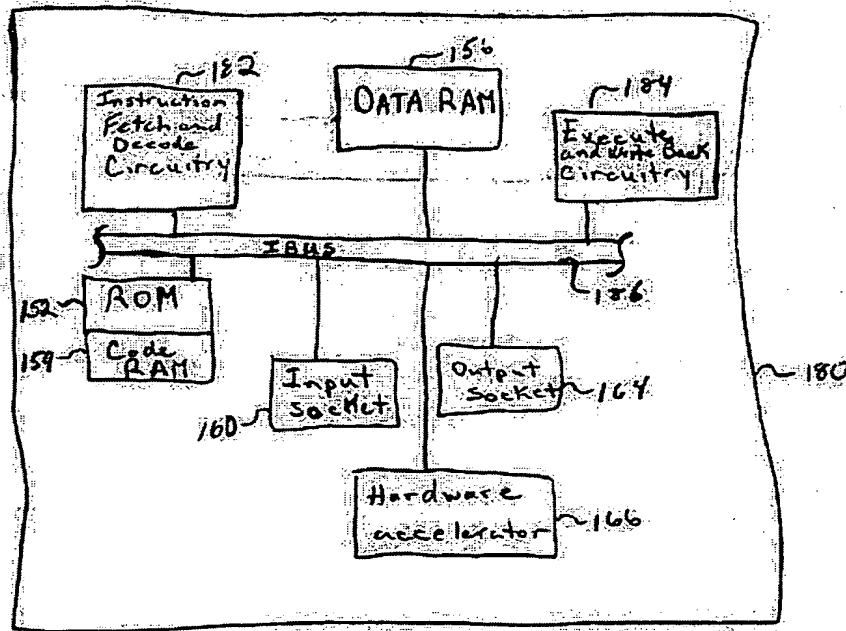 182
Instruction
Fetch and
Decode
Circuitry
156
DATA RAM
184
Execute
and Write Back
Circuitry
IBUS
186
152
ROM
159
Code
RAM
160
Input
Socket
Output
Socket
164
180
Hardware
accelerator
166